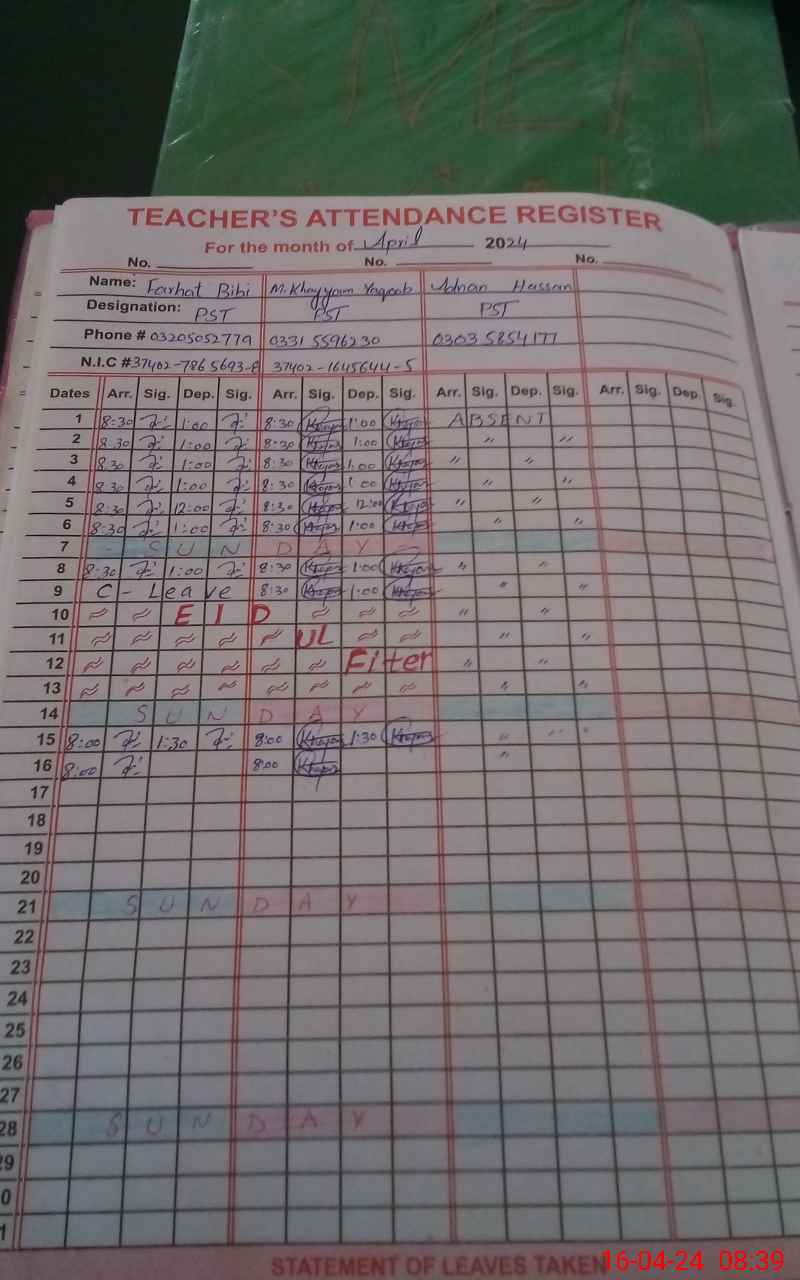 TEACHER'S ATTENDANCE REGISTER
For the month of April 2024
No. No. No.
Name: Farhat Bibi M. Khayyam Yaqoob Adnan Hassan
Designation: PST PST PST
Phone # 03205052779 0331 5596230 0303 5854177
N.I.C # 37402-786 5693-8 37402-1645644-5
Dates Arr. Sig. Dep. Sig. Arr. Sig. Dep. Sig. Arr. Sig. Dep. Sig. Arr. Sig. Dep. Sig.
1 8:30 1:00 8:30 1:00 ABSENT
2 8:30 1:00 8:30 1:00 " "
3 8:30 1:00 8:30 1:00 " "
4 8:30 1:00 8:30 1:00 " "
5 8:30 12:00 8:30 12:00 " "
6 8:30 1:00 8:30 1:00 " "
7 SUNDAY
8 8:30 1:00 8:30 1:00 " "
9 C-Leave 8:30 1:00 " "
10 EID " "
11 UL " "
12 Fiter " "
13 " "
14 SUNDAY
15 8:00 1:30 8:00 1:30 " " "
16 8:00 8:00 "
17
18
19
20
21 SUNDAY
22
23
24
25
26
27
28 SUNDAY
29
0
1
STATEMENT OF LEAVES TAKEN
16-04-24 08:39